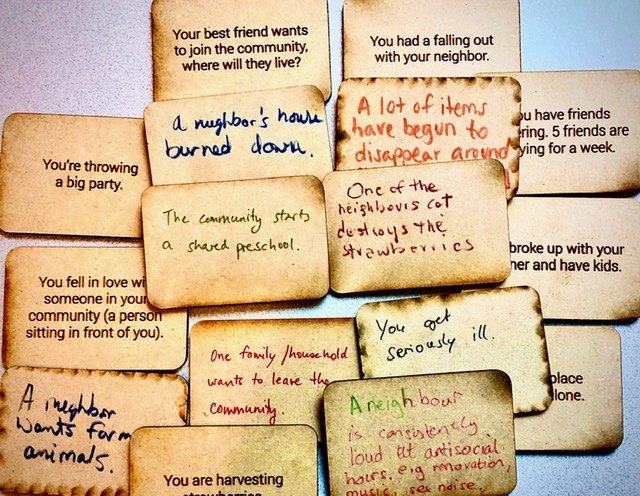 Your best friend wants
to join the community,
where will they live?
You had a falling out
with your neighbor.
a neighbor's house
burned down.
A lot of items
have begun to
disappear around
have friends
5 friends are
for a week.
You're throwing
a big party.
The community starts
a shared preschool.
One of the
neighbours cat
destroys the
strawberries
broke up with your
and have kids.
You fell in love
someone in your
community (a person
sitting in front of you).
You get
seriously ill.
One family/household
wants to leave the
community.
place
A neighbor
wants farm
animals.
A neighbour
is consistently
loud at antisocial
hours. e.g renovation,
music, sex noise.
You are harvesting
strawberries